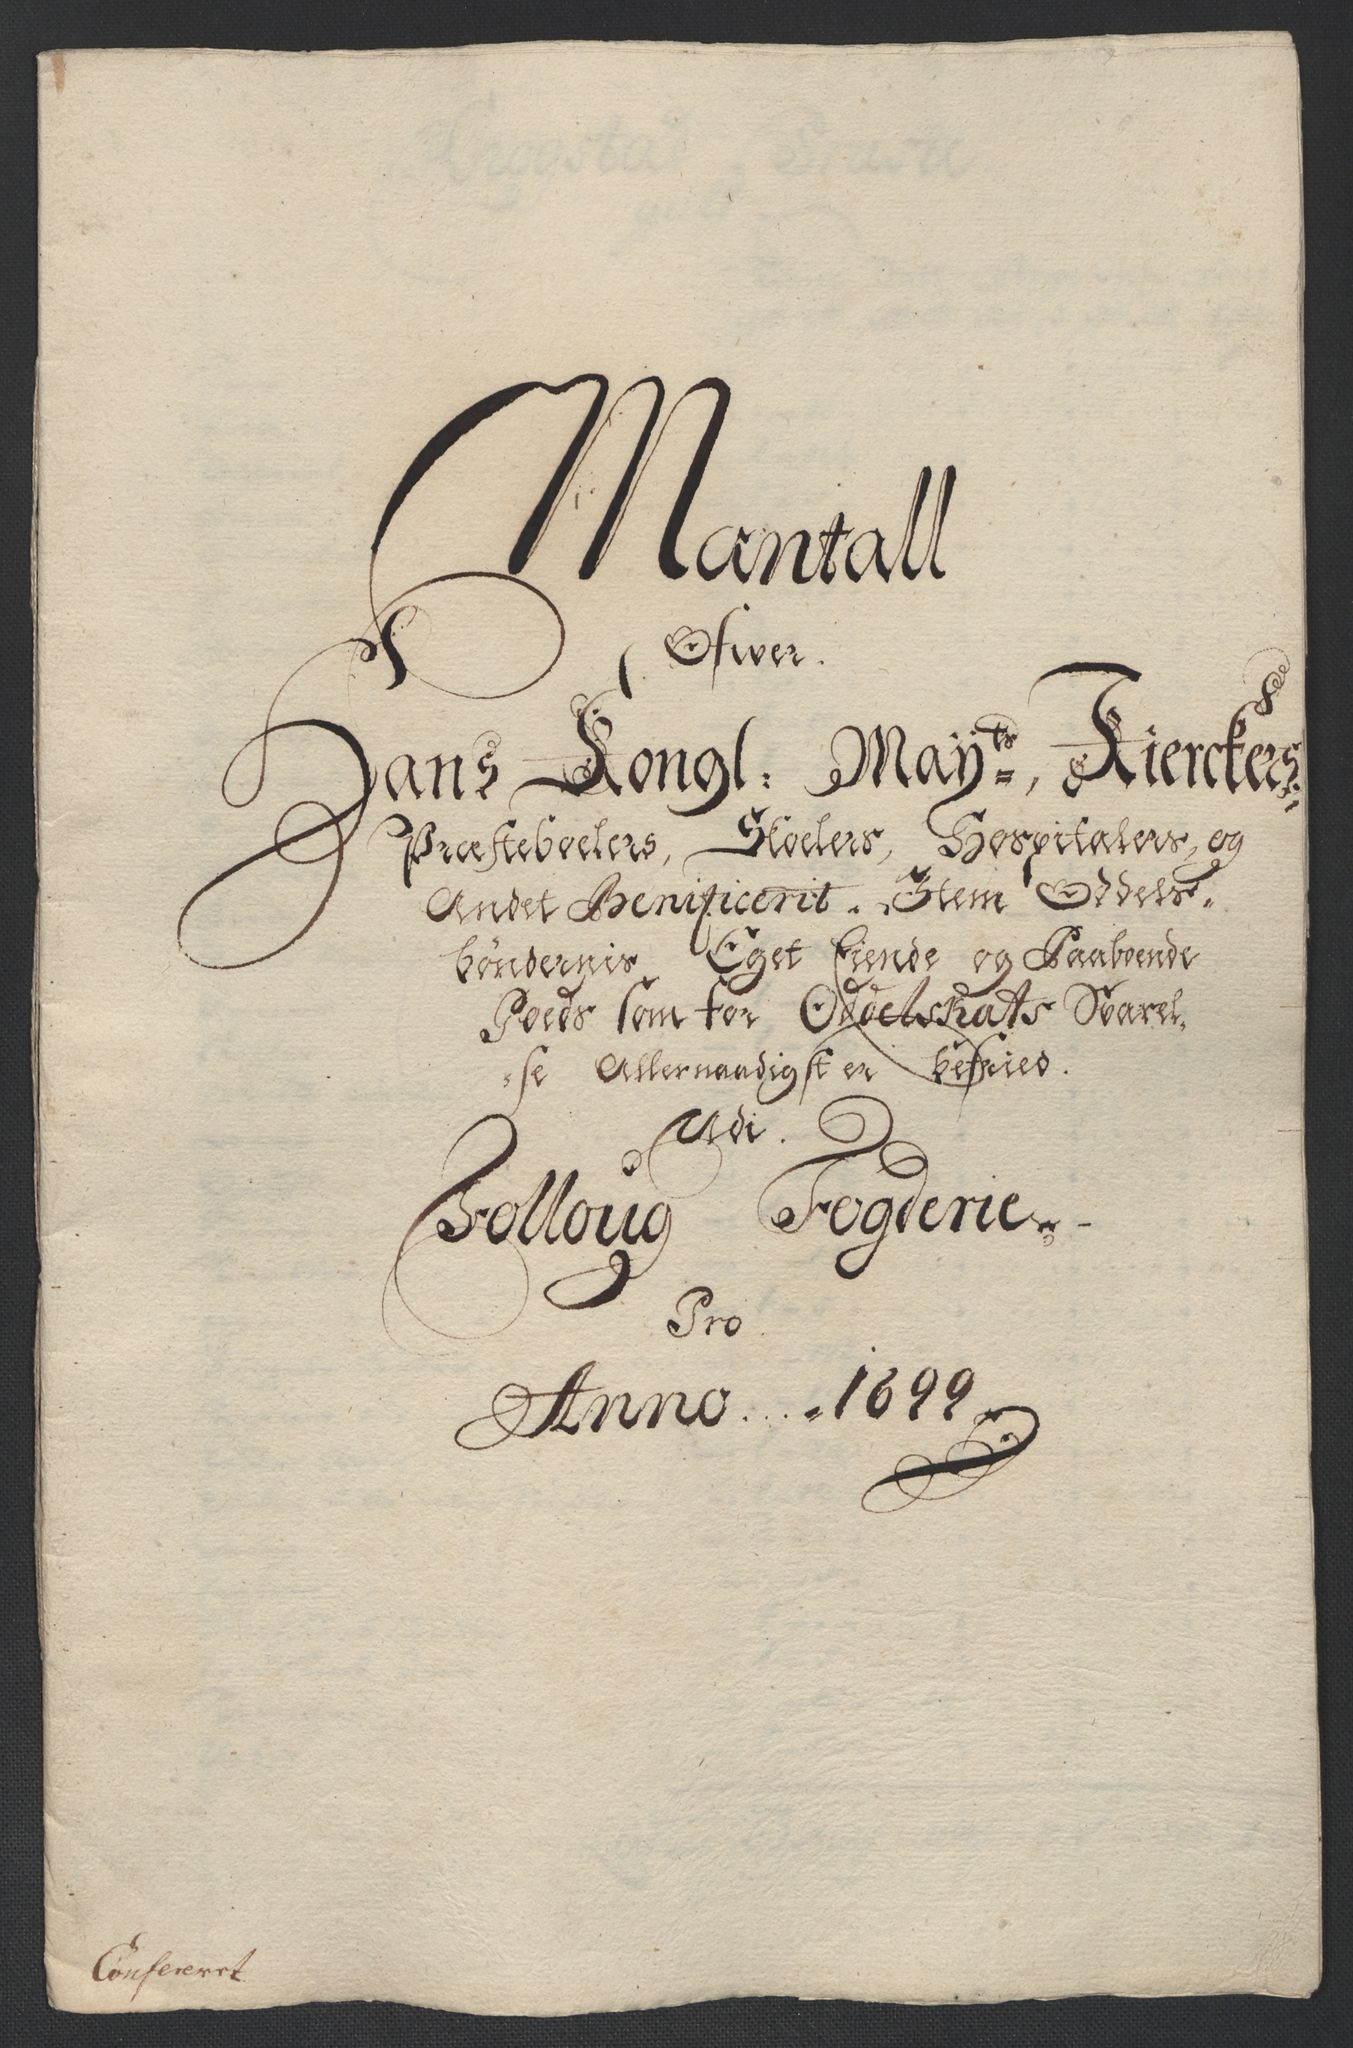 Mantall
Ofwer.
Hans Kongl: Maÿts, Kierckers
Præsteboelers, Skoelers, Hospitalers, og
Andet Benificerit. Item Oddels-
bøndernis Eget Eiende og Paaboende
Goeds som for Oddelskats Svarel-
se Allernaadigst er befried.
Udi.
Folloug Fogderie
Pro
Anno 1699
Confererret